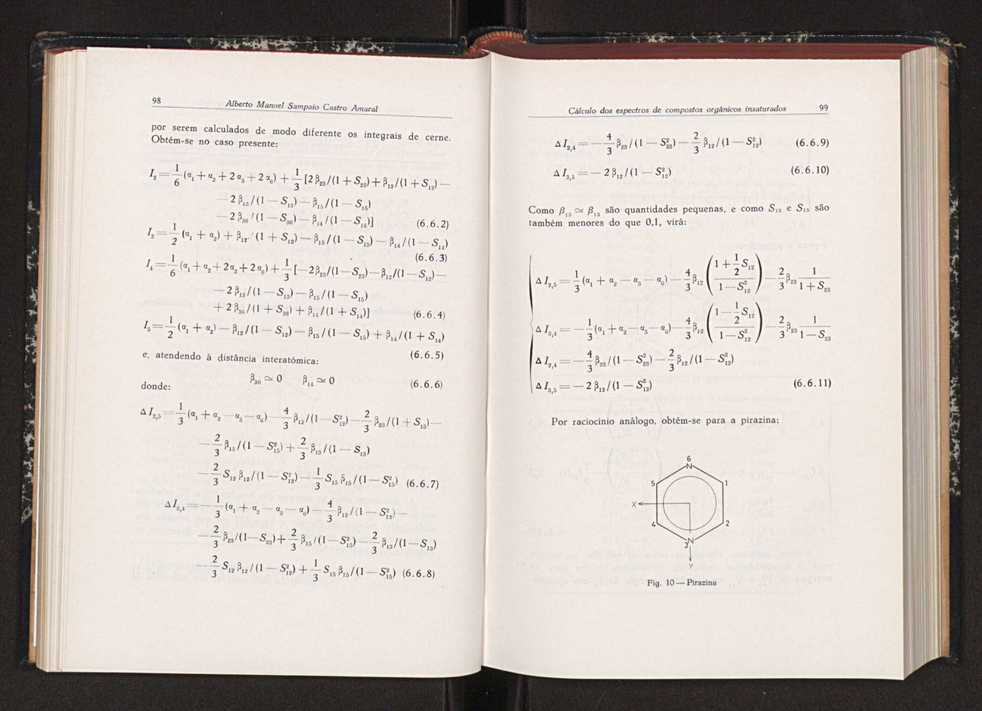 98 Alberto Manuel Sampaio Castro Amaral
por serem calculados de modo diferente os integrais de cerne.
Obtêm-se no caso presente:
I₂ = 1/6 (α₁ + α₂ + 2 α₅ + 2 α₆) + 1/3 [2 β₂₃/(1 + S₂₃) + β₁₂/(1 + S₁₂) —
— 2 β₁₂/(1 — S₁₂) — β₁₅/(1 — S₁₅)
— 2 β₃₆/(1 — S₃₆) — β₁₄/(1 — S₁₄)] (6.6.2)
I₃ = 1/2 (α₁ + α₂) + β₁₂/(1 + S₁₂) — β₁₅/(1 — S₁₅) — β₁₄/(1 — S₁₄)
(6.6.3)
I₄ = 1/6 (α₁ + α₂ + 2 α₅ + 2 α₆) + 1/3 [— 2 β₂₃/(1 — S₂₃) — β₁₂/(1 — S₁₂) —
— 2 β₁₂/(1 — S₁₂) — β₁₅/(1 — S₁₅)
+ 2 β₃₆/(1 + S₃₆) + β₁₄/(1 + S₁₄)] (6.6.4)
I₅ = 1/2 (α₁ + α₂) — β₁₂/(1 — S₁₂) — β₁₅/(1 — S₁₅) + β₁₄/(1 + S₁₄)
(6.6.5)
e, atendendo à distância interatómica:
β₃₆ ≃ 0 β₁₄ ≃ 0 (6.6.6)
donde:
Δ I₂,₅ = 1/3 (α₁ + α₂ — α₅ — α₆) — 4/3 β₁₂/(1 — S²₁₂) — 2/3 β₂₃/(1 + S₂₃) —
— 2/3 β₁₅/(1 — S²₁₅) + 2/3 β₁₅/(1 — S₁₅)
— 2/3 S₁₂ β₁₂/(1 — S²₁₂) — 1/3 S₁₅ β₁₅/(1 — S²₁₅) (6.6.7)
Δ I₃,₄ = — 1/3 (α₁ + α₂ — α₅ — α₆) — 4/3 β₁₂/(1 — S²₁₂) —
— 2/3 β₂₃/(1 — S₂₃) + 2/3 β₁₅/(1 — S²₁₅) — 2/3 β₁₅/(1 — S₁₅)
— 2/3 S₁₂ β₁₂/(1 — S²₁₂) + 1/3 S₁₅ β₁₅/(1 — S²₁₅) (6.6.8)
Cálculo dos espectros de compostos orgânicos insaturados 99
Δ I₂,₄ = — 4/3 β₂₃/(1 — S²₂₃) — 2/3 β₁₂/(1 — S²₁₂) (6.6.9)
Δ I₃,₅ = — 2 β₁₂/(1 — S²₁₂) (6.6.10)
Como β₁₅ ≃ β₁₅ são quantidades pequenas, e como S₁₅ e S₁₅ são
também menores do que 0,1, virá:
Δ I₂,₅ = 1/3 (α₁ + α₂ — α₅ — α₆) — 4/3 β₁₂ ((1 + 1/2 S₁₂)/(1 — S²₁₂)) — 2/3 β₂₃ 1/(1 + S₂₃)
Δ I₃,₄ = — 1/3 (α₁ + α₂ — α₅ — α₆) — 4/3 β₁₂ ((1 — 1/2 S₁₂)/(1 — S²₁₂)) — 2/3 β₂₃ 1/(1 — S₂₃)
Δ I₂,₄ = — 4/3 β₂₃/(1 — S²₂₃) — 2/3 β₁₂/(1 — S²₁₂)
Δ I₃,₅ = — 2 β₁₂/(1 — S²₁₂) (6.6.11)
Por raciocínio análogo, obtêm-se para a pirazina:
6
N
5 1
X
4 2
3 N
Y
Fig. 10 — Pirazina